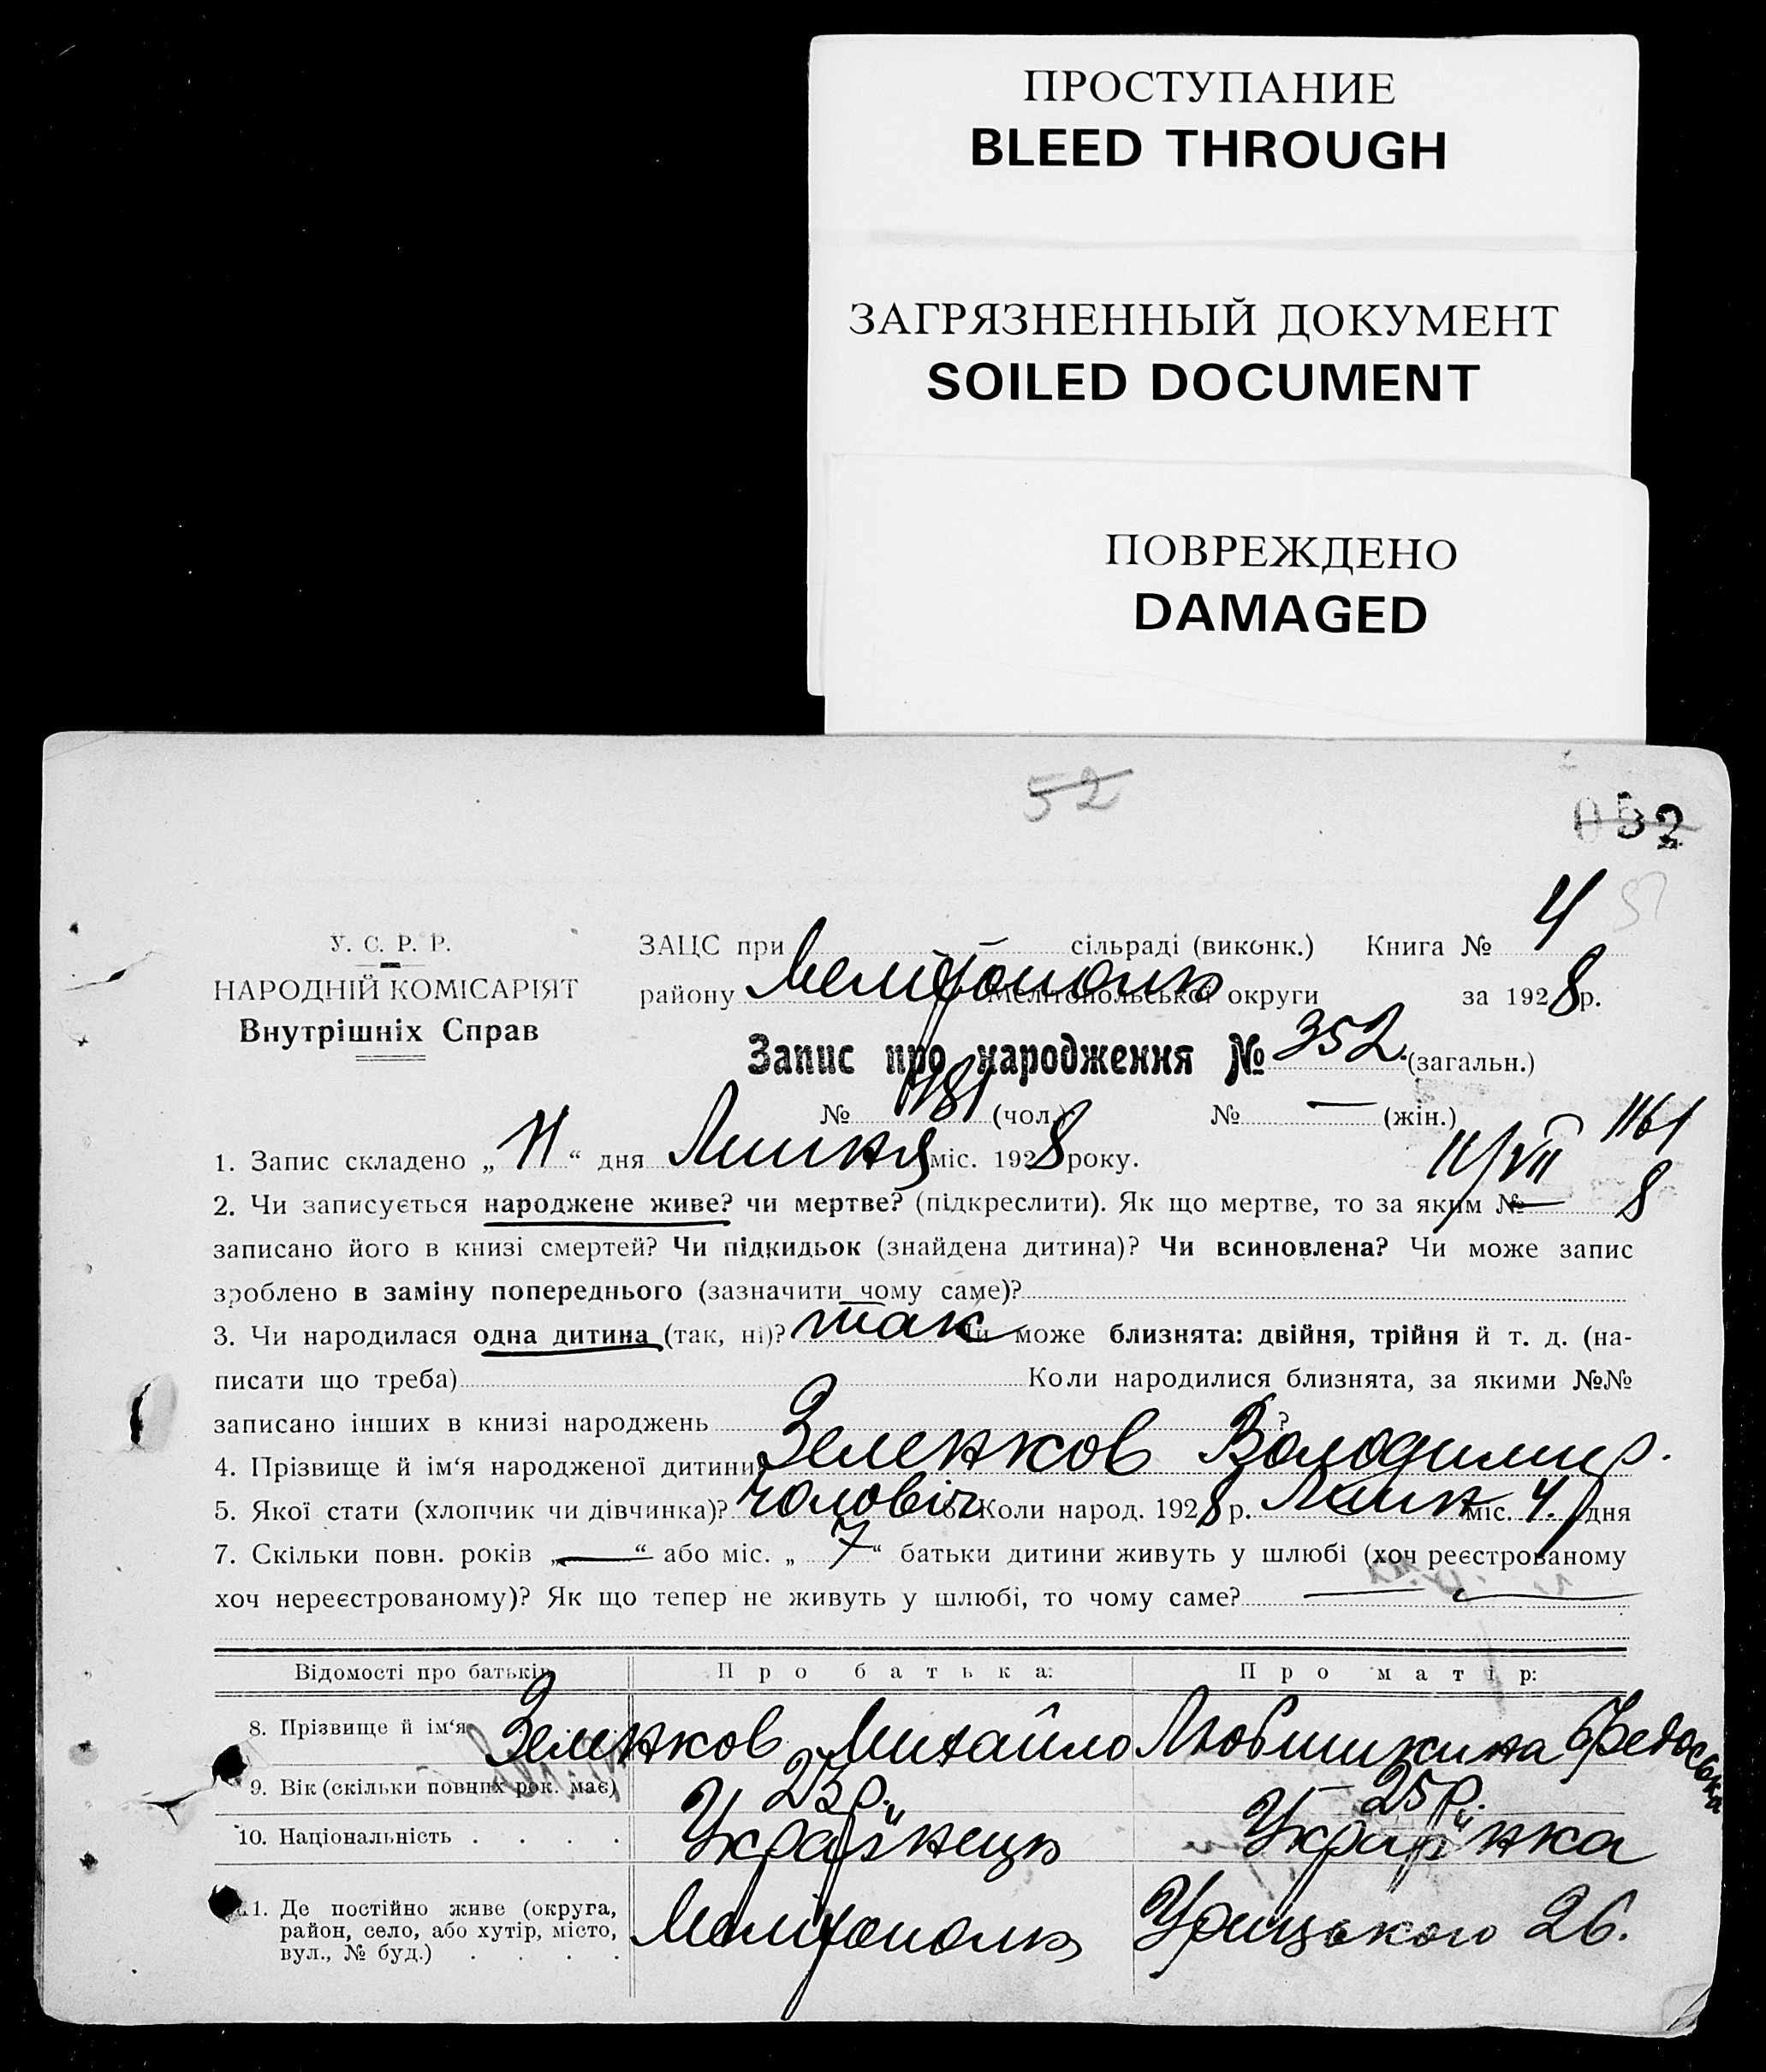 ПРОСТУПАНИЕ
BLEED THROUGH
ЗАГРЯЗНЕННЫЙ ДОКУМЕНТ
SOILED DOCUMENT
ПОВРЕЖДЕНО
DAMAGED
52
052
У. С. Р. Р.
НАРОДНІЙ КОМІСАРІЯТ
Внутрішніх Справ
ЗАЦС при — сільраді (виконк.) Книга № 4
району Мелітополь Мелітопольської округи за 1928 р.
Запис про народження № 352. (загальн.)
№ 181 (чол.) № — (жін.)
1161
1. Запис складено „ 11 “ дня Липня міс. 1928 року.
11/VII 8
2. Чи записується народжене живе? чи мертве? (підкреслити). Як що мертве, то за яким № —
записано його в книзі смертей? Чи підкидьок (знайдена дитина)? Чи всиновлена? Чи може запис
зроблено в заміну попереднього (зазначити чому саме)?
3. Чи народилася одна дитина (так, ні)? так Чи може близнята: двійня, трійня й т. д. (на-
писати що треба) Коли народилися близнята, за якими №№
записано інших в книзі народжень ?
4. Прізвище й ім‘я народженої дитини Зеленков Володимир.
5. Якої стати (хлопчик чи дівчинка)? чоловіч 6. Коли народ. 1928 р. Липн міс. 4. дня
7. Скільки повн. років „ — “ або міс. „ 7 “ батьки дитини живуть у шлюбі (хоч реєстрованому
хоч нереєстрованому)? Як що тепер не живуть у шлюбі, то чому саме? —
Відомості про батьків Про батька: Про матір:
8. Прізвище й ім‘я Зеленков Михайло Любишкина Федоська
9. Вік (скільки повних рок. має) 23 р. 25 р.
10. Національність . . . . Українець Українка
11. Де постійно живе (округа,
район, село, або хутір, місто,
вул., № буд.) . . . . Мелітополь Урицького 26.